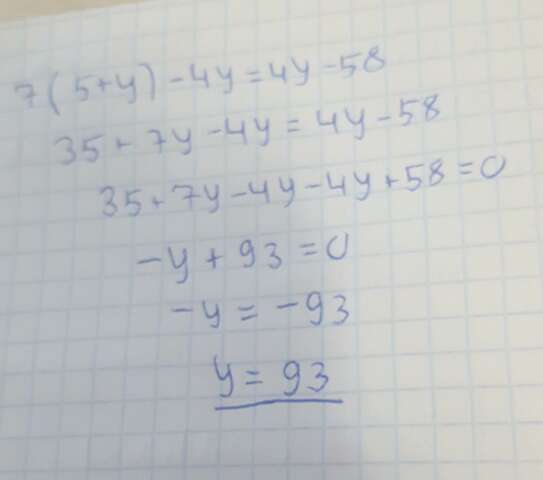 7(5+y)-4y=4y-58
35+7y-4y=4y-58
35+7y-4y-4y+58=0
-y+93=0
-y=-93
y=93